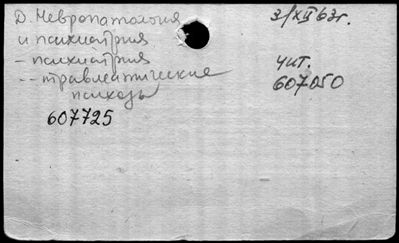 Д. Невропатология
и психиатрия
- психиатрия
-- травматические
психозы
607725
3/XII 63г.
Чит.
607050